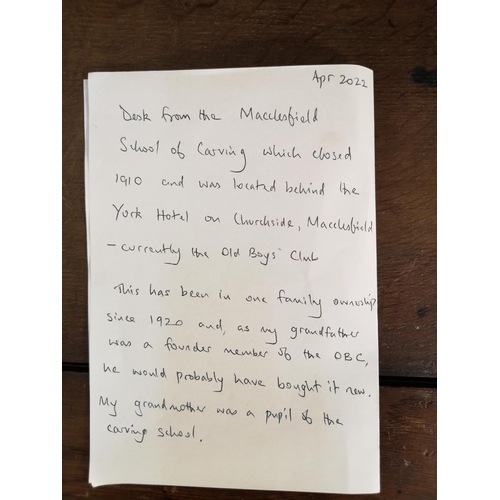 Apr 2022
Desk from the Macclesfield
School of Carving which closed
1910 and was located behind the
York Hotel on Churchside, Macclesfield
– currently the Old Boys' Club
This has been in one family ownership
since 1920 and, as my grandfather
was a founder member of the OBC,
he would probably have bought it new.
My grandmother was a pupil of the
carving school.